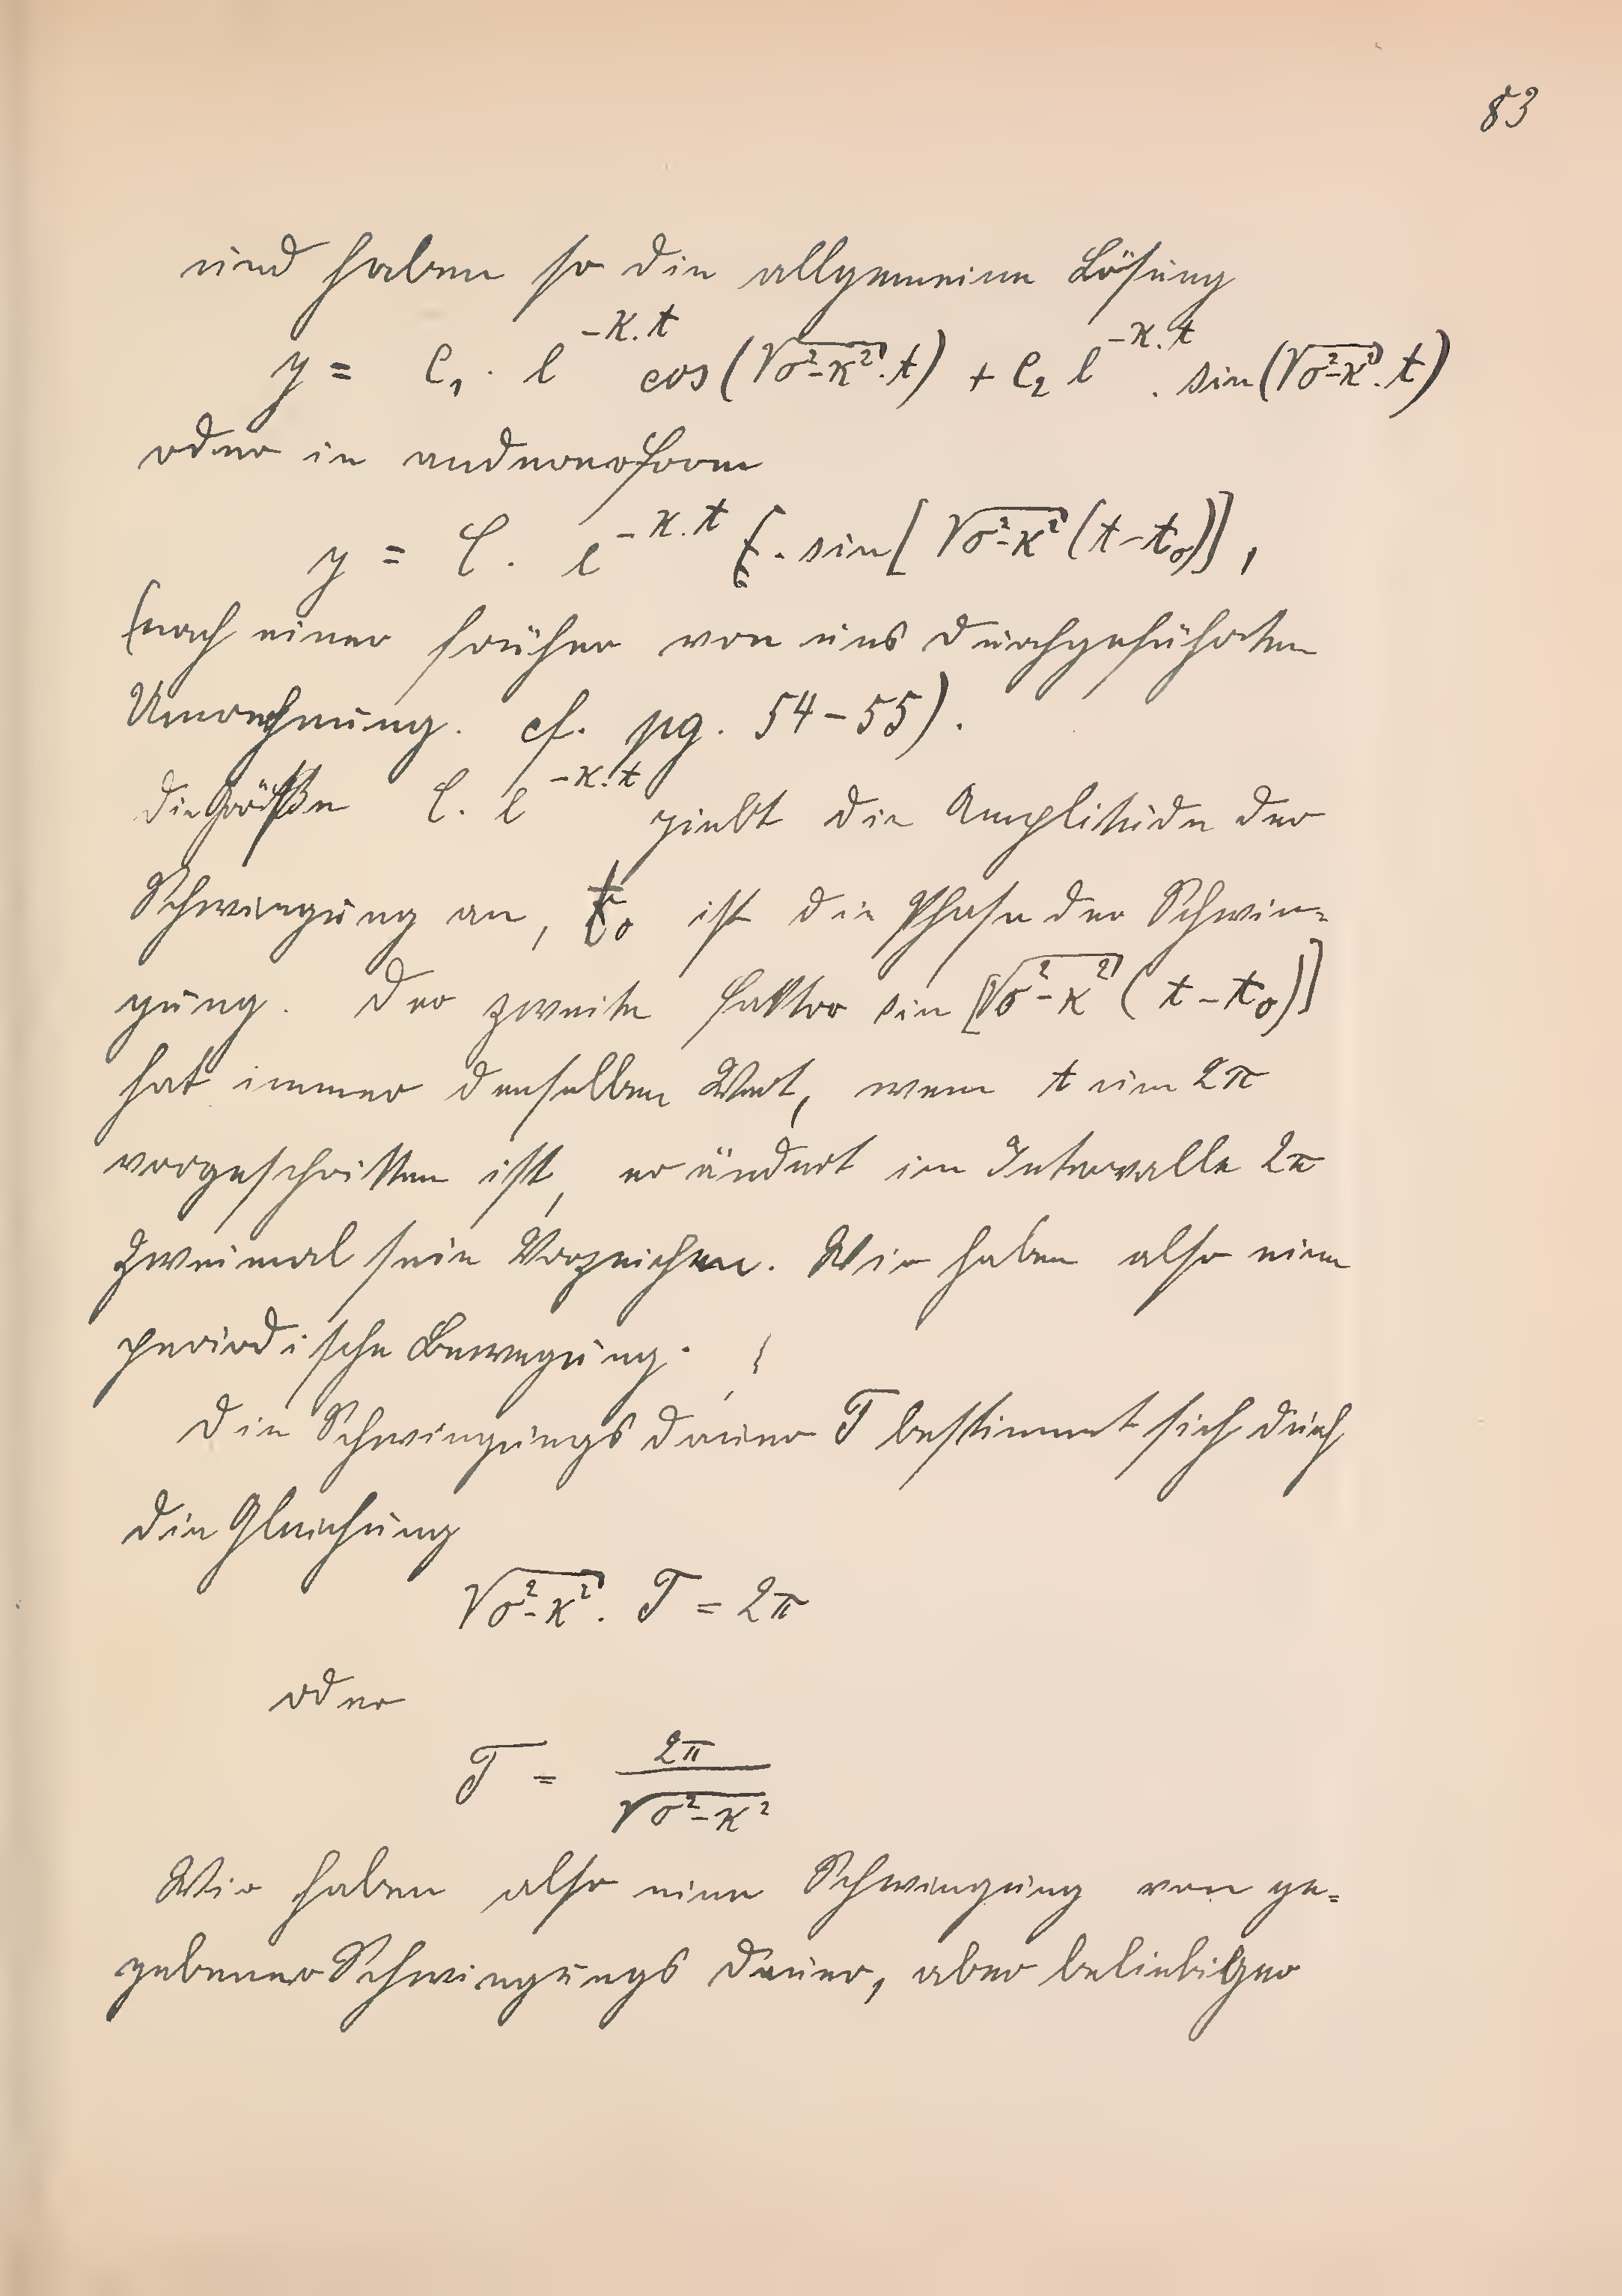 83
und haben so die allgemeine Lösung
y = C₁ · e^{-κ.t} cos(√(σ²-κ²).t) + C₂ e^{-κ.t} . sin(√(σ²-κ²).t)
oder in anderer Form
y = C . e^{-κ.t} . sin[√(σ²-κ²)(t-t₀)],
(nach einer früher von uns durchgeführten
Umrechnung. cf. pg. 54-55).
Die Größe C. e^{-κ.t} giebt die Amplitude der
Schwingung an, t₀ ist die Phase der Schwin=
gung. Der zweite Faktor sin[√(σ²-κ²)(t-t₀)]
hat immer denselben Wert, wenn t um 2π
vorgeschritten ist, er ändert im Intervalle 2π
zweimal sein Vorzeichen. Wir haben also eine
periodische Bewegung.
Die Schwingungsdauer T bestimmt sich durch
die Gleichung
√(σ²-κ²). T = 2π
oder
T = 2π / √(σ²-κ²)
Wir haben also eine Schwingung von ge=
gebener Schwingungsdauer, aber beliebiger